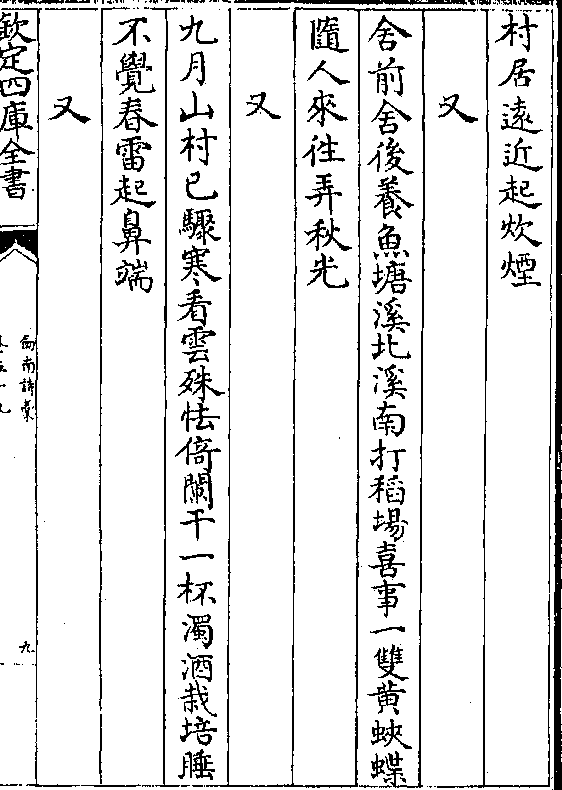 村居遠近起炊煙
又
舍前舍後養魚塘溪北溪南打稻場喜事一雙黄蛺蝶
隨人來徃弄秋光
又
九月山村已驟寒看雲殊怯倚闌干一杯濁酒栽培睡
不覺春雷起鼻端
又
欽定四庫全書
劒南詩稾
九